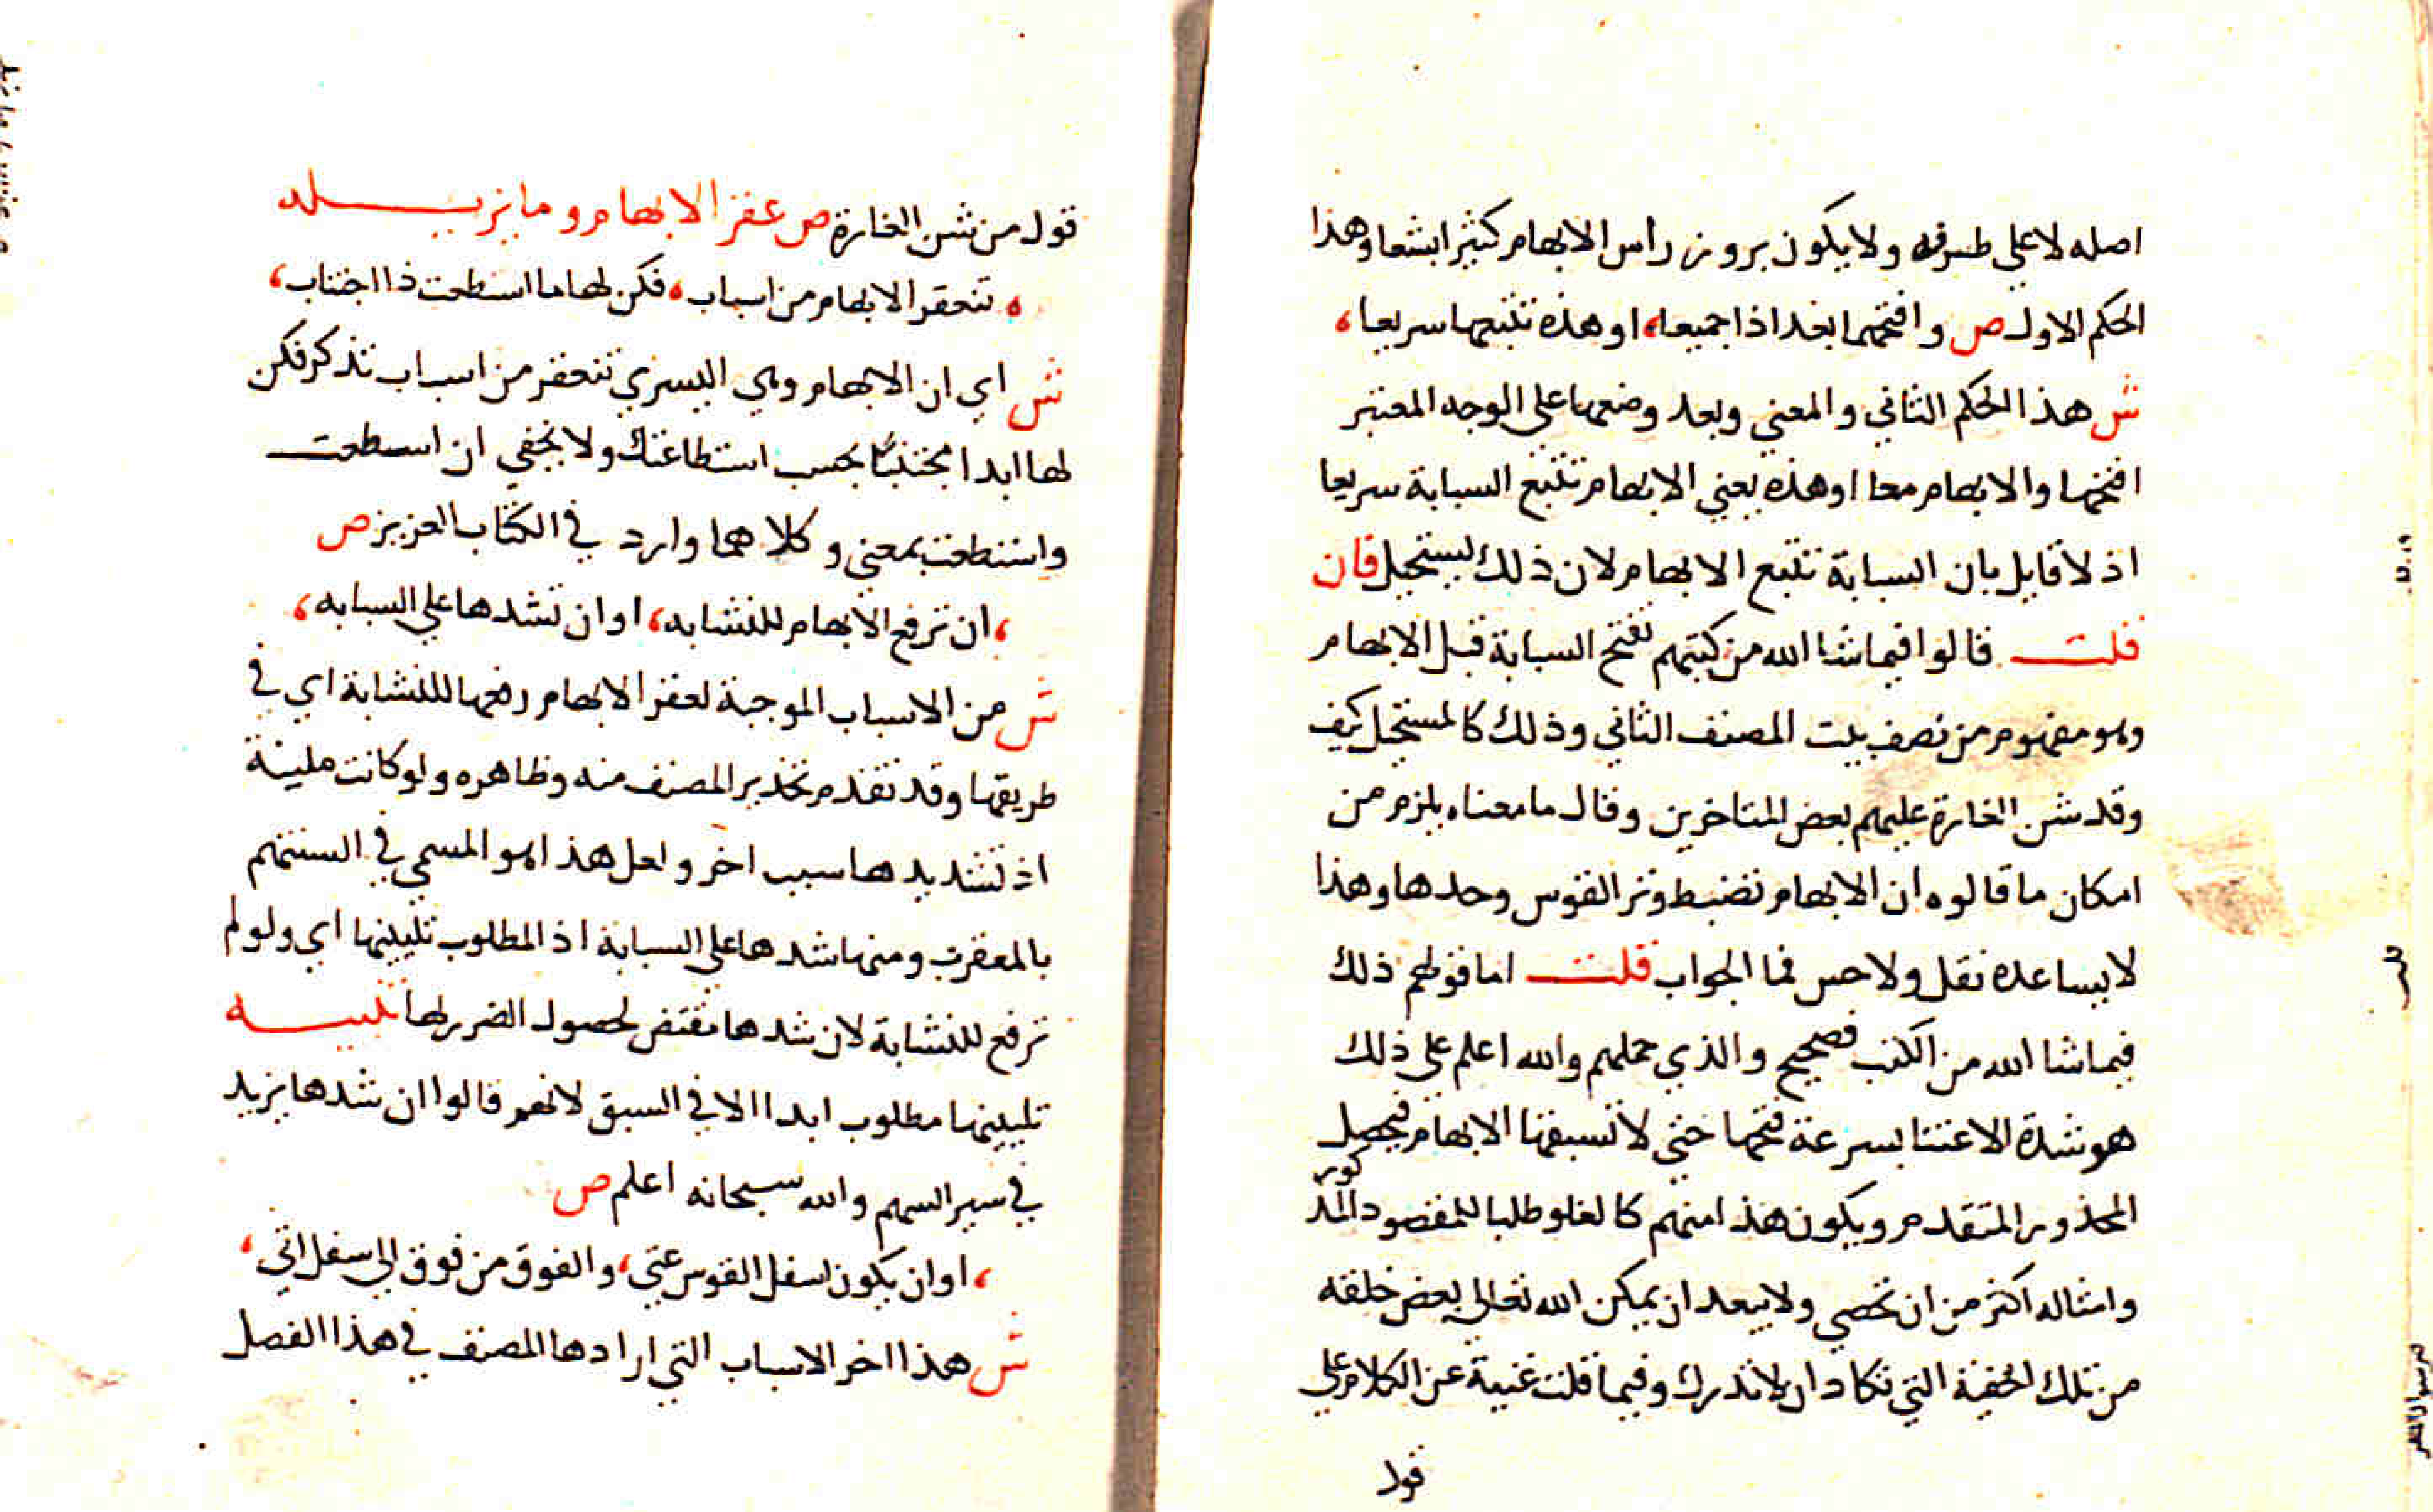 اصله لا علي طرفه ولا يكون بروز راس الابهام كثيرا بشعا وهذا
الحكم الاول ص وافتحهما بعد اذا جميعا، او هذه تتبعها سريعا،
ش هذا الحكم الثاني والمعني وبعد وضعها على الوجه المعتبر
افتحها والابهام معا او هذه يعني الابهام تتبع السبابة سريعا
اذ لا قايل بان السبابة تتبع الابهام لان ذلك يستحيل فان
قلت قالوا فيما شا الله من كتبهم تفتح السبابة قبل الابهام
وهو مفهوم من نصف بيت المصنف الثاني وذلك كالمستحيل كيف
وقد شن الغارة عليهم بعض المتاخرين وقال ما معناه يلزم من
امكان ما قالوه ان الابهام تضبط وتر القوس وحدها وهذا
لا يساعده نقل ولا حس فما الجواب قلت اما قولهم ذلك
فيما شا الله من الكتب فصحيح والذي حملهم والله اعلم على ذلك
هو شدة الاعتنا بسرعة فتحها حتي لا تسبقها الابهام فيحصل
المحذور المتقدم ويكون هذا منهم كالغلو طلبا للمقصود المذكور
وامثاله اكثر من ان تحصي ولا يبعد ان يمكن الله تعالى بعض خلقه
من تلك الخفية التي تكاد ان لا تدرك وفيما قلت غنية عن الكلام على
قول
قول من شن الغارة ص عقر الابهام وما يزيله
، تنعقر الابهام من اسباب، فكن لها ما اسطعت ذا اجتناب،
ش اي ان الابهام وهي اليسري تنعقر من اسباب تذكر فكن
لها ابدا مجتنبا بحسب استطاعتك ولا يخفي ان اسطعت
واستطعت بمعني وكلاهما وارد في الكتاب العزيز ص
، ان ترفع الابهام للنشابه، او ان تشدها على السبابه،
ش من الاسباب الموجبة لعقر الابهام رفعها للنشابة اي في
طريقها وقد تقدم تحذير المصنف منه وظاهره ولو كانت ملينة
اذ تشديدها سبب اخر ولعل هذا هو المسمي في السنتهم
بالمعقرب ومنها شدها على السبابة اذ المطلوب تليينها اي ولو لم
ترفع للنشابة لان شدها مقتض لحصول الضرر لها تنبيه
تليينها مطلوب ابدا الا في السبق لانهم قالوا ان شدها يزيد
في سير السهم والله سبحانه اعلم ص
، او ان يكون اسفل القوس عتي، والفوق من فوق الى اسفل اتي،
ش هذا اخر الاسباب التي ارادها المصنف في هذا الفصل